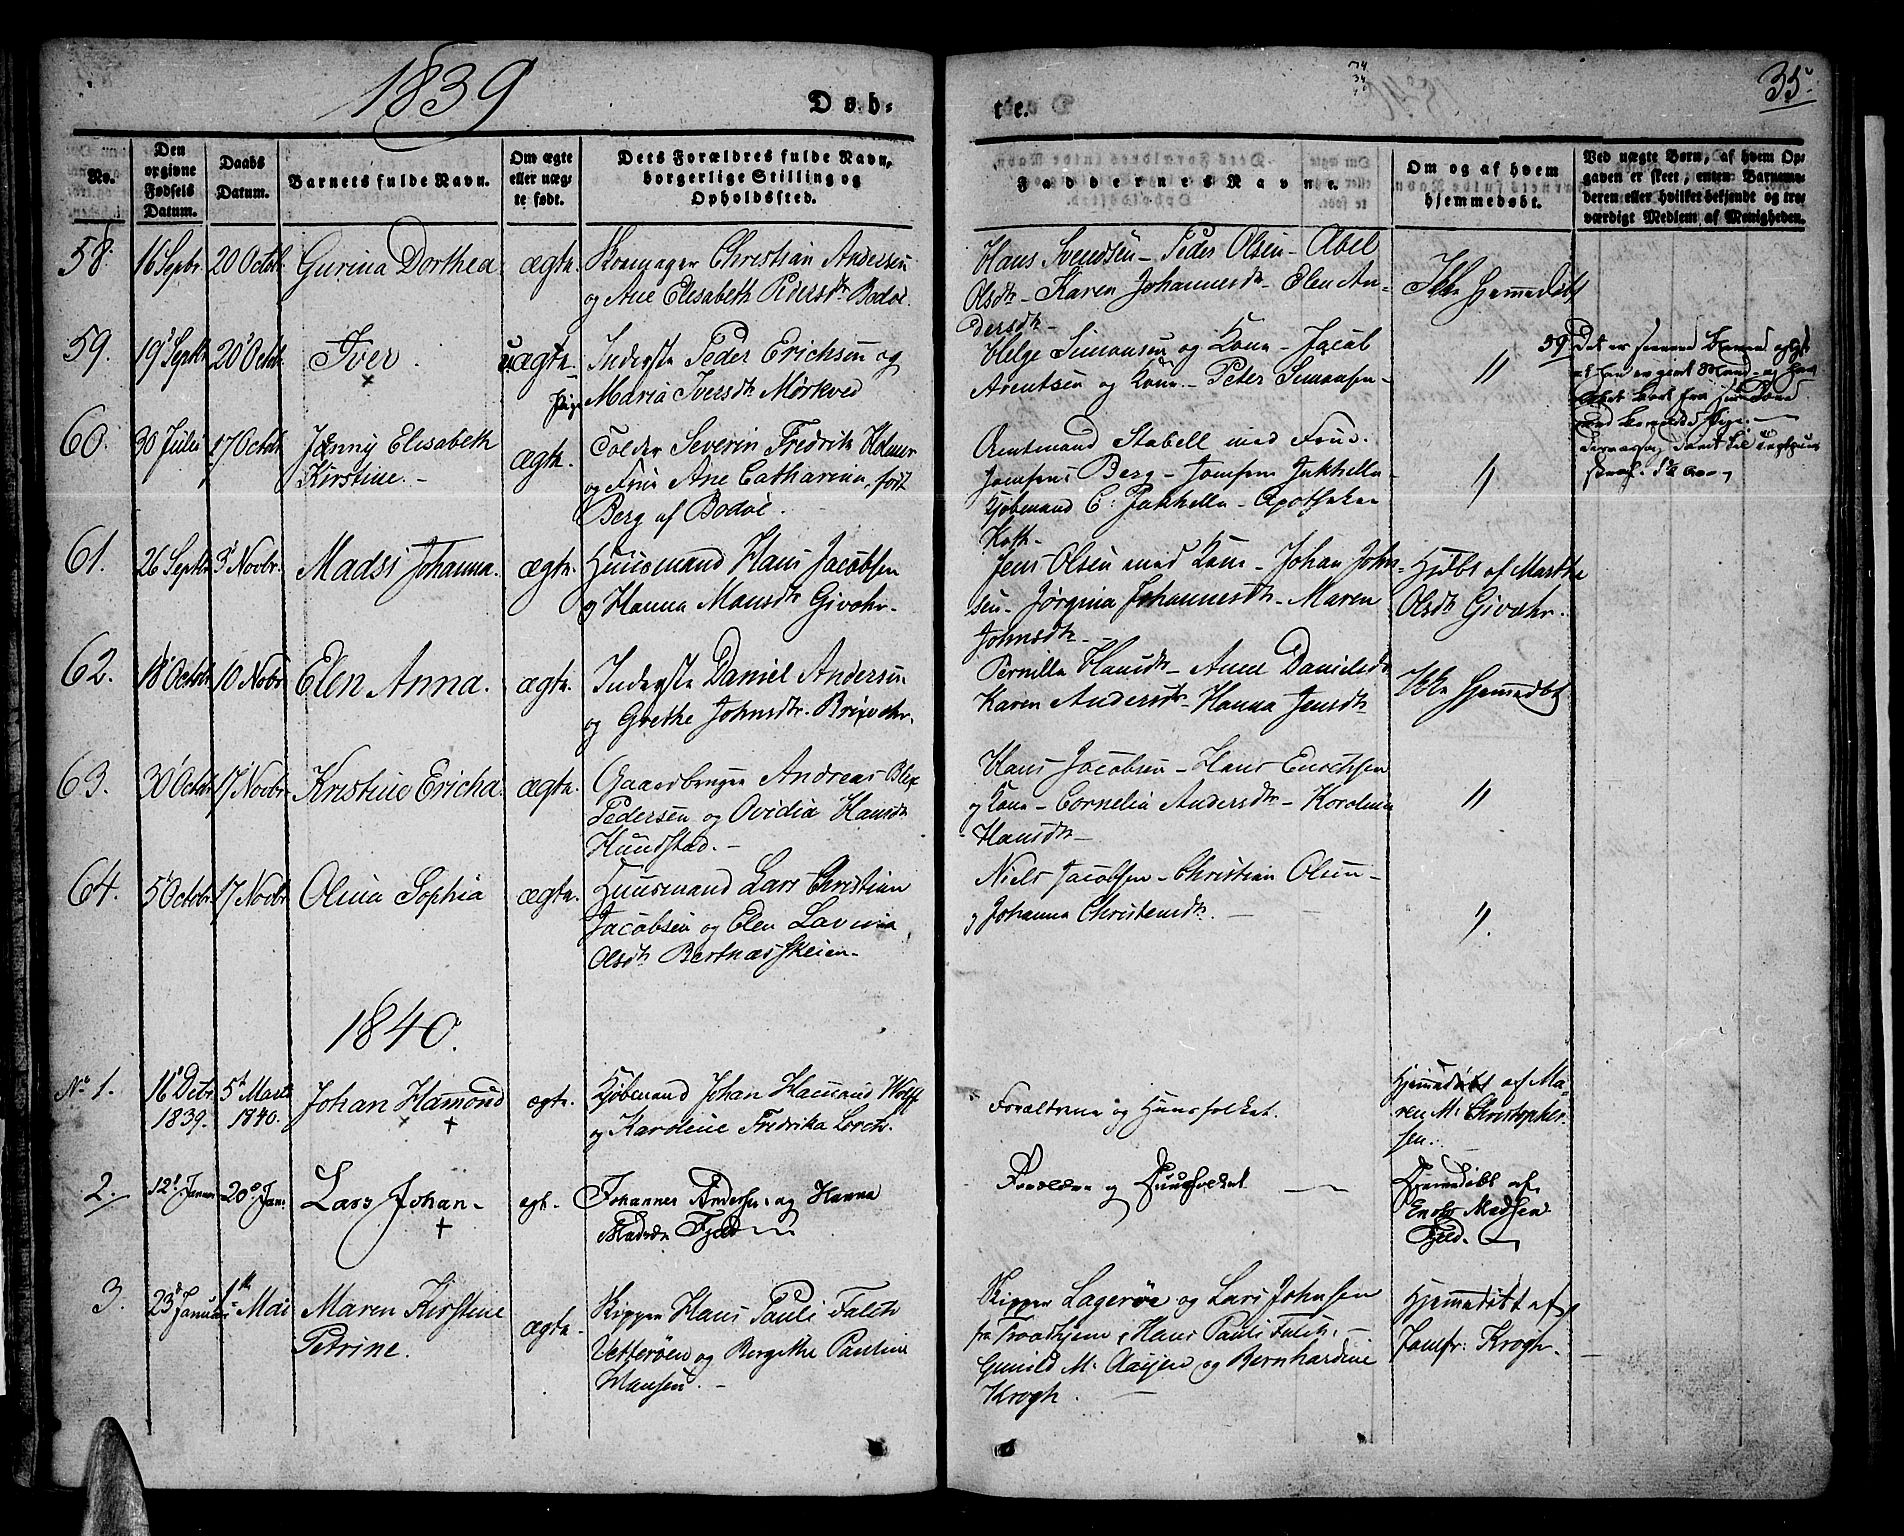 1839
Døb-
te.
35
No.
Den opgivne Fødsels Datum.
Daabs Datum.
Barnets fulde Navn.
Om ægte eller uæg-te født.
Dets Forældres fulde Navn, borgerlige Stilling og Opholdssted.
Faddernes Navne.
Om og af hvem hjemmedøbt.
Ved uægte Børn, af hvem Op-gaven er skeet; enten Barnemo-deren eller hvilket bekjendt og tro-værdigt Medlem af Menigheden.
58. 16 Septbr. 20 Octbr. Gurina Dorthea ægte. Skomager Christian Andersen
og Ane Elisabeth Pedersdtr Bodöe.
Hans Svendsen - Peder Olsen - Abel
Olsdtr - Karen Johannesdtr - Elen An-
dersdtr -
Ikke Hjemmedøbt
59. 19 Septbr 20 Octbr Iver uægte Inderste Peder Erichsen og
Pige Maria Iversdtr Mørkved
Helge Simonsen og Kone - Jacob
Arentsen og Kone - Peter Simonsen -
"
59
60. 30 Julii 17 Octbr Jenny Elisabeth
Kirstine. -
ægte. Tolder Severin Fredrik
og Frue Ane Catharina, født
Berg af Bodöe.
Amtmand Stabell med Frue.
Jomfru Berg - Jomfru Jakhelln
Kjøbmand C: Jakhelln - Apotheker
"
61. 26 Septbr 3 Novbr. Madsi Johanna. ægte. Huusmand Hans Jacobsen
og Hanna Monsdtr Givær -
Jens Olsen med Kone - Johan John-
sen - Jørgina Johannesdtr - Maren
Johnsdtr -
Hjdbt af Marthe
Olsdtr Givær.
62. 18 Octbr 10 Novbr. Elen Anna. ægte. Inderste Daniel Andersen
og Grethe Johnsdtr.
Pernilla Hansdtr - Anne Danielsdtr
Karen Andersdtr - Hanna Jensdtr
Ikke Hjemmedbt
63. 30 Octbr 17 Novbr Kristine Ericha ægte. Gaardbruger Andreas Blix
Pedersen og Ovidia Hansdtr
Hundstad. -
Hans Jacobsen - Hans Enochsen
og Kone - Cornelia Andersdtr - Karolina
Hansdtr -
"
64. 5 Octbr. 17 Novbr Olina Sophia ægte. Huusmand Lars Christian
Jacobsen og Elen Lavina
Olsdtr Bertnæsskeien -
Niels Jacobsen - Christian Olsen -
og Johanna Christensdtr.
"
1840.
No 1. 16 Debr 1839. 5 Marts 1840. Johan Hamond ægte. Kjøbmand Johan Hamond Wolff
og Karoline Fredrika Lorch.
Forældrene og Huusfolket.
Hjemmedøbt af Ma-
ren M. Christopher-
sen.
2. 12 Januar 20 Jan. Lars Johan - egte. Johannes Andersen og Hanna
Fjeld
Forældrene og Huusfolket
Hjemdøbt af
Enoch Madsen
Fjeld.
3. 23 Januar 1 Mai Maren Kirstine
Petrine.
ægte. Skipper Hans Pauli Falch
og Bergithe Pauline
Hansen. -
Skipper Lagerøe og Lars Johnsen
fra Trondhjem, Hans Pauli Falch, -
Gunild M. og Bernhardine
Krogh.
Hjemmedøbt af
Jomfr: Krogh.